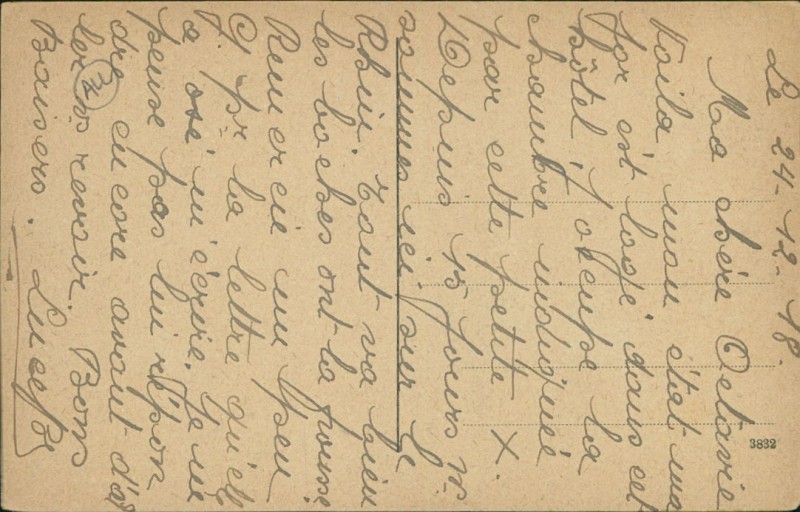 Le 24-12-18.
Ma chère Octavie
Voila mon état ma
jor est logé dans cet
hôtel, j'occupe la
chambre indiquée
par cette petite x.
Depuis 15 jours n.
sommes ici sur le
Rhin. Tout va bien
les boches ont la frousse
Remercie un peu
G. pr la lettre qu'el
a osé m'écrire. Je ne
pense pas lui répon
dre encore avant d'al
ler vs revoir. Bons
Baisers.
3832